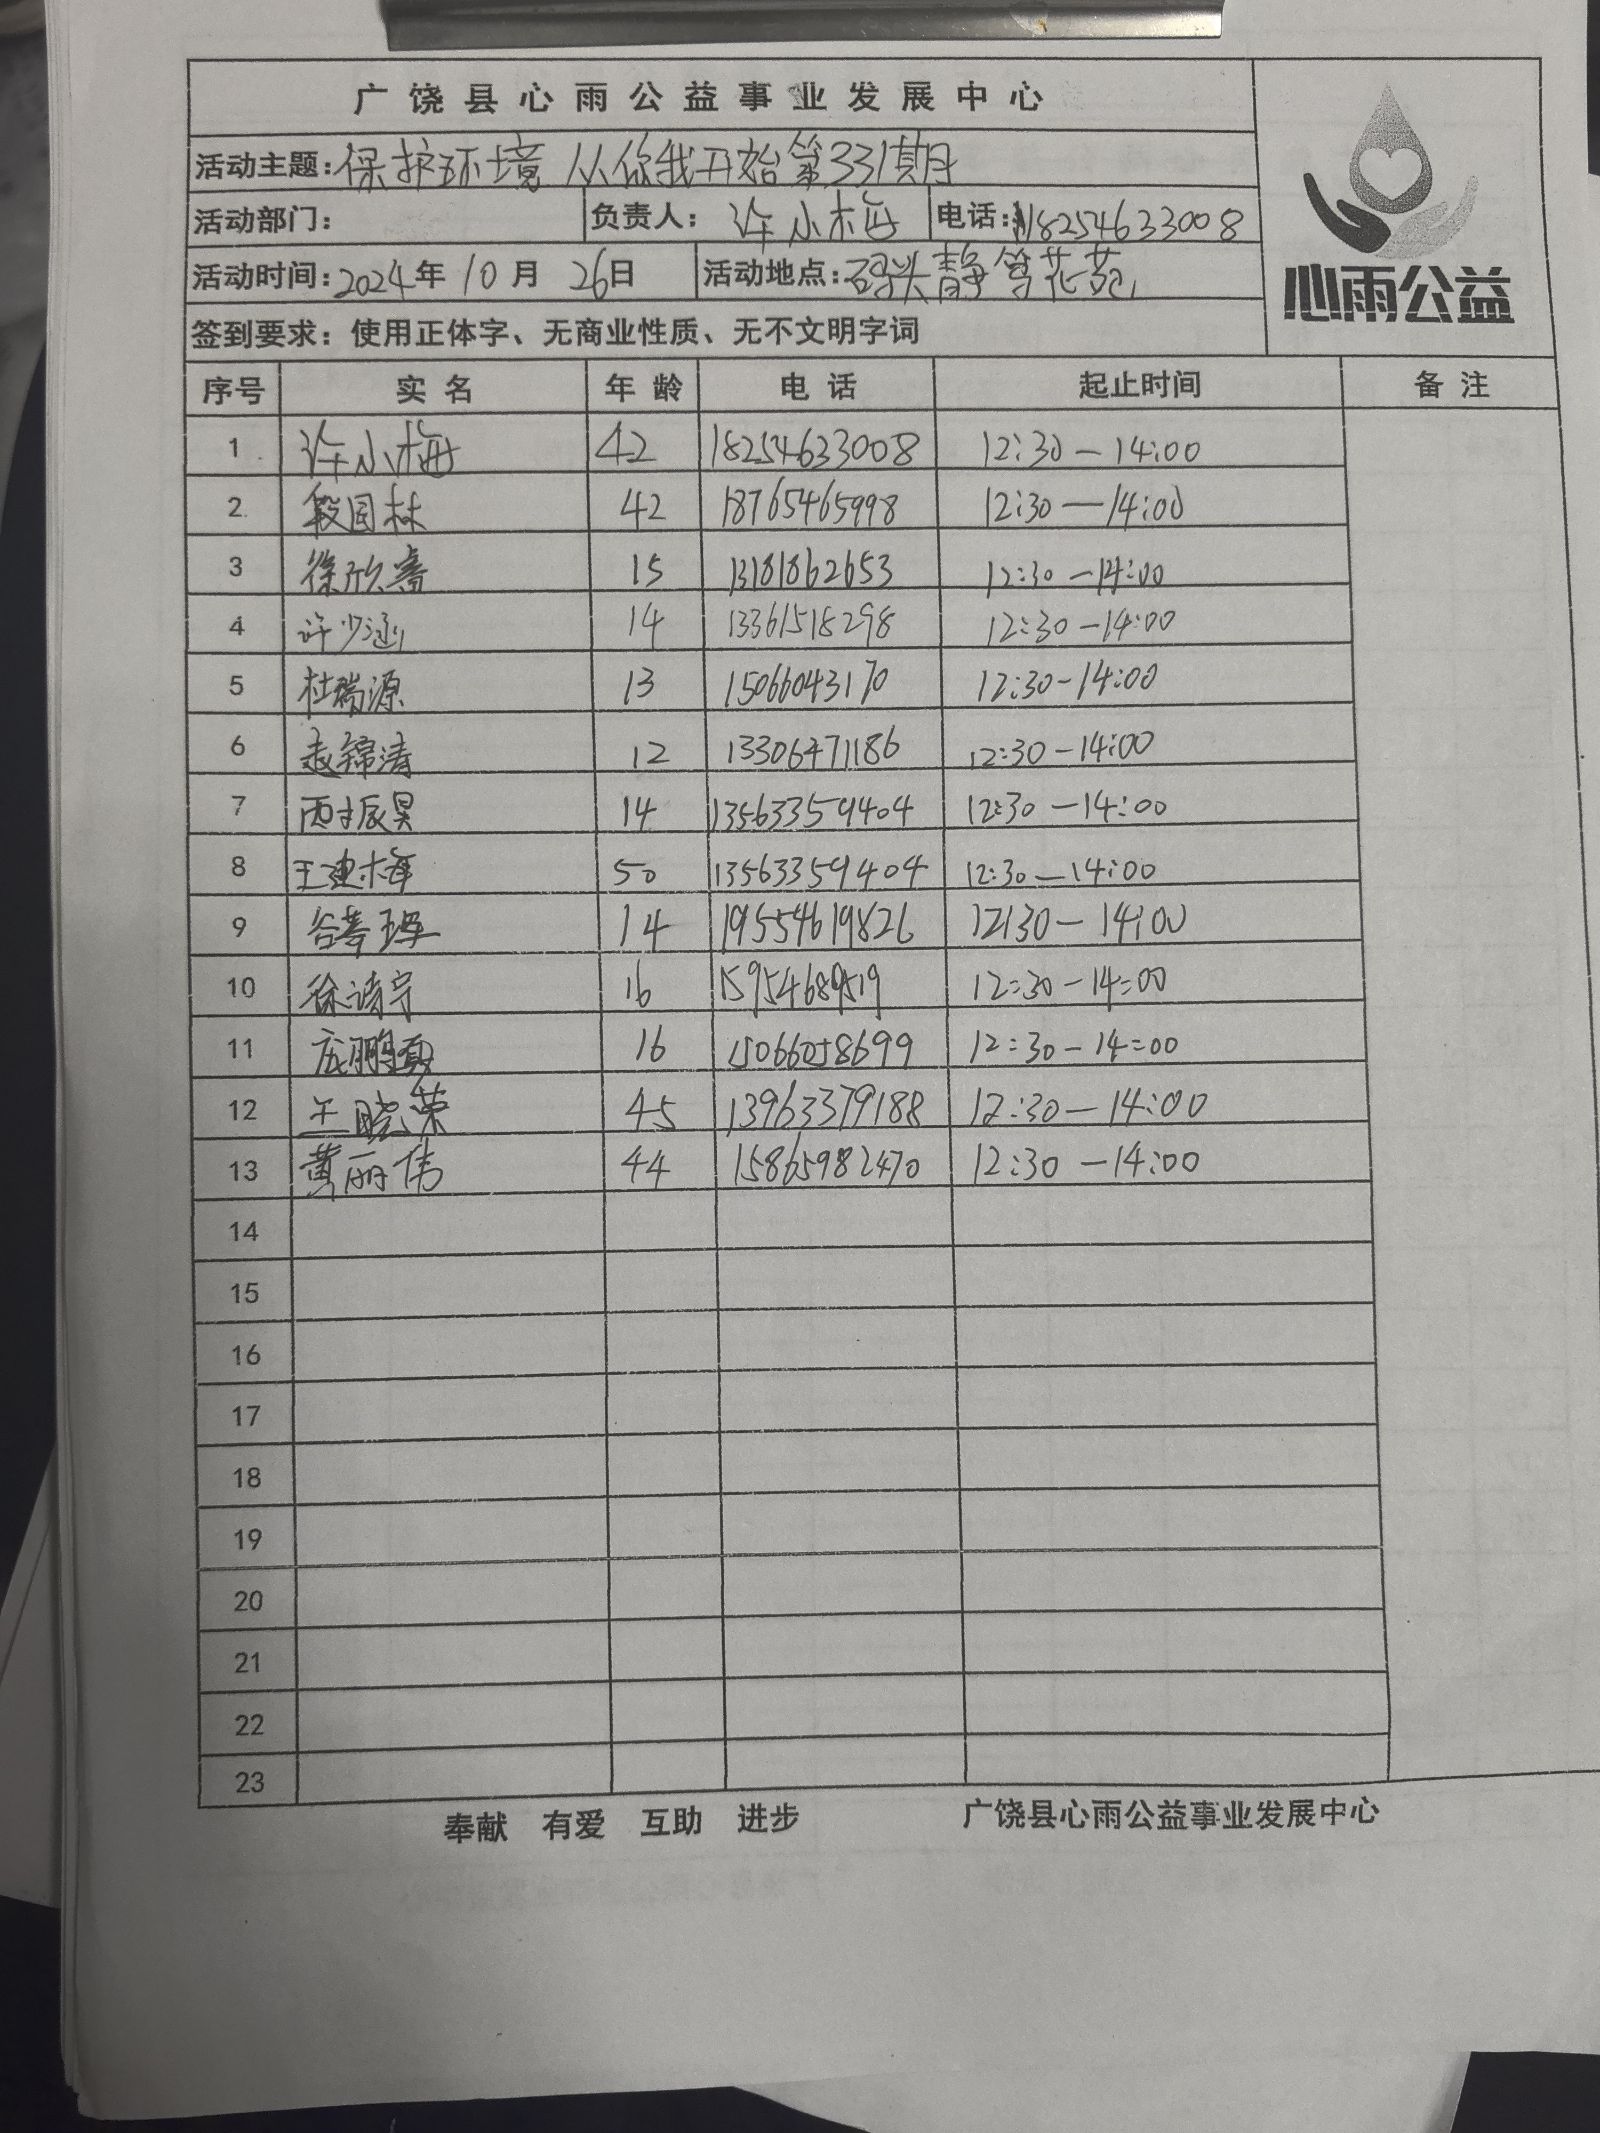 广饶县心雨公益事业发展中心
活动主题：保护环境 从你我开始第331期
活动部门： 负责人：许小梅 电话：18254633008
活动时间：2024年10月26日 活动地点：码头静等花苑
签到要求：使用正体字、无商业性质、无不文明字词
心雨公益
序号 实名 年龄 电话 起止时间 备注
1 许小梅 42 18254633008 12:30—14:00
2 段国林 42 18765465998 12:30—14:00
3 徐欣 15 13181862653 12:30—14:00
4 许少涵 14 13361518298 12:30—14:00
5 杜瑞源 13 15066043170 12:30-14:00
6 赵锦涛 12 13306471186 12:30—14:00
7 西振昊 14 13563359404 12:30—14:00
8 王建梅 50 13563359404 12:30—14:00
9 谷 14 19554619826 12:30—14:00
10 徐诗宁 16 15954689519 12:30-14:00
11 庞鹏 16 15066058699 12:30-14:00
12 王晓荣 45 13963379188 12:30—14:00
13 黄丽伟 44 15865982470 12:30—14:00
14
15
16
17
18
19
20
21
22
23
奉献 有爱 互助 进步 广饶县心雨公益事业发展中心